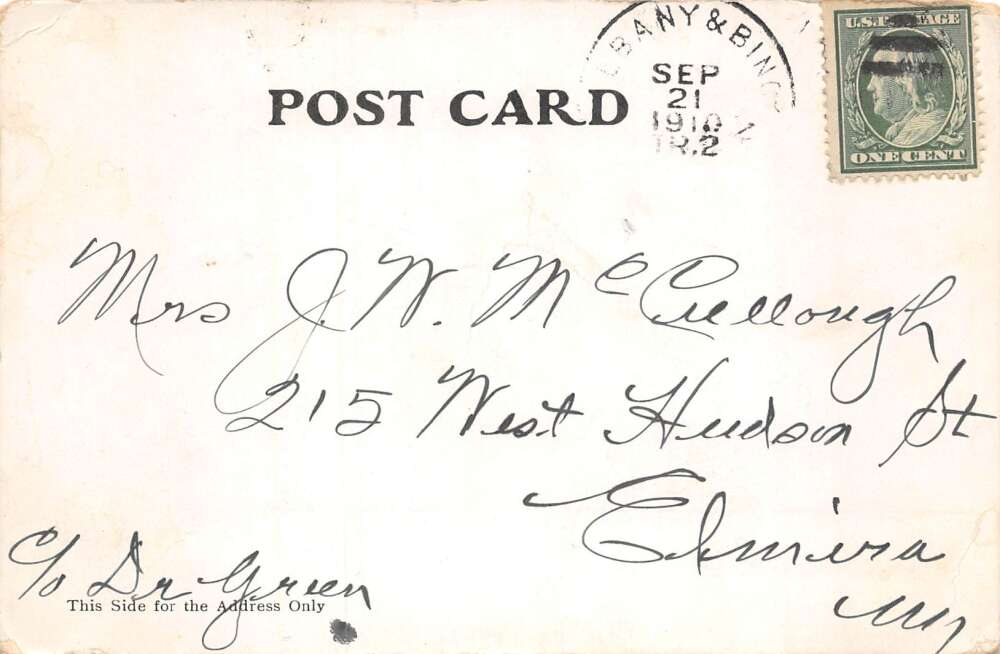 POST CARD
LBANY & BING
SEP
21
1910
TR.2
U.S. POSTAGE
ONE CENT
Mrs J. W. McCullough
215 West Hudson St
Elmira
NY
c/o Dr Green
This Side for the Address Only